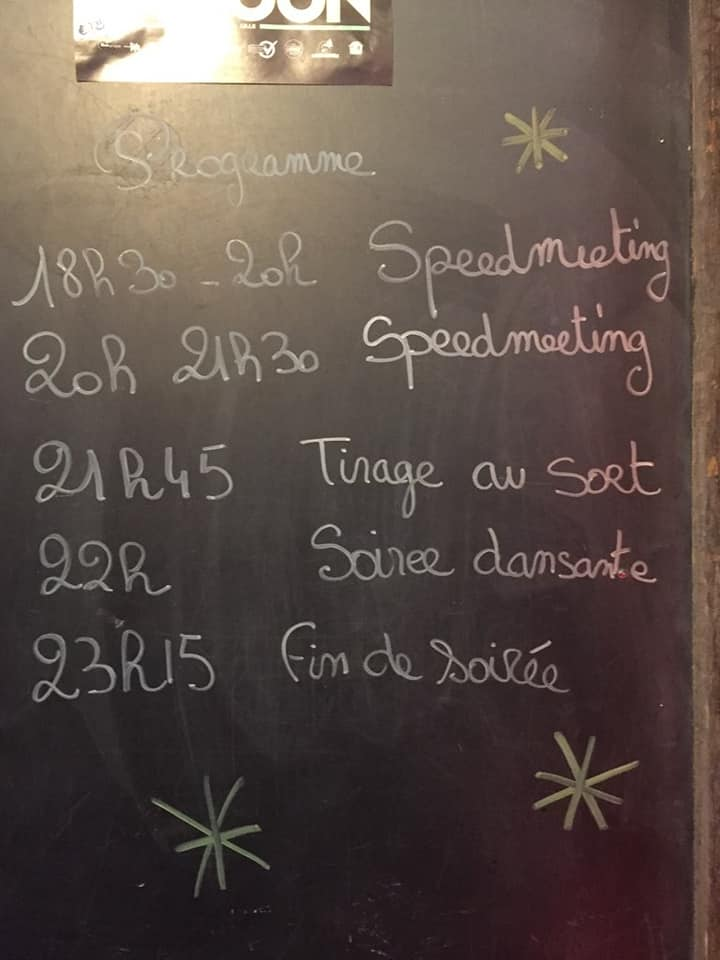 Programme
18h30 - 20h Speedmeeting
20h 21h30 Speedmeeting
21h45 Tirage au sort
22h Soiree dansante
23h15 Fin de soirée